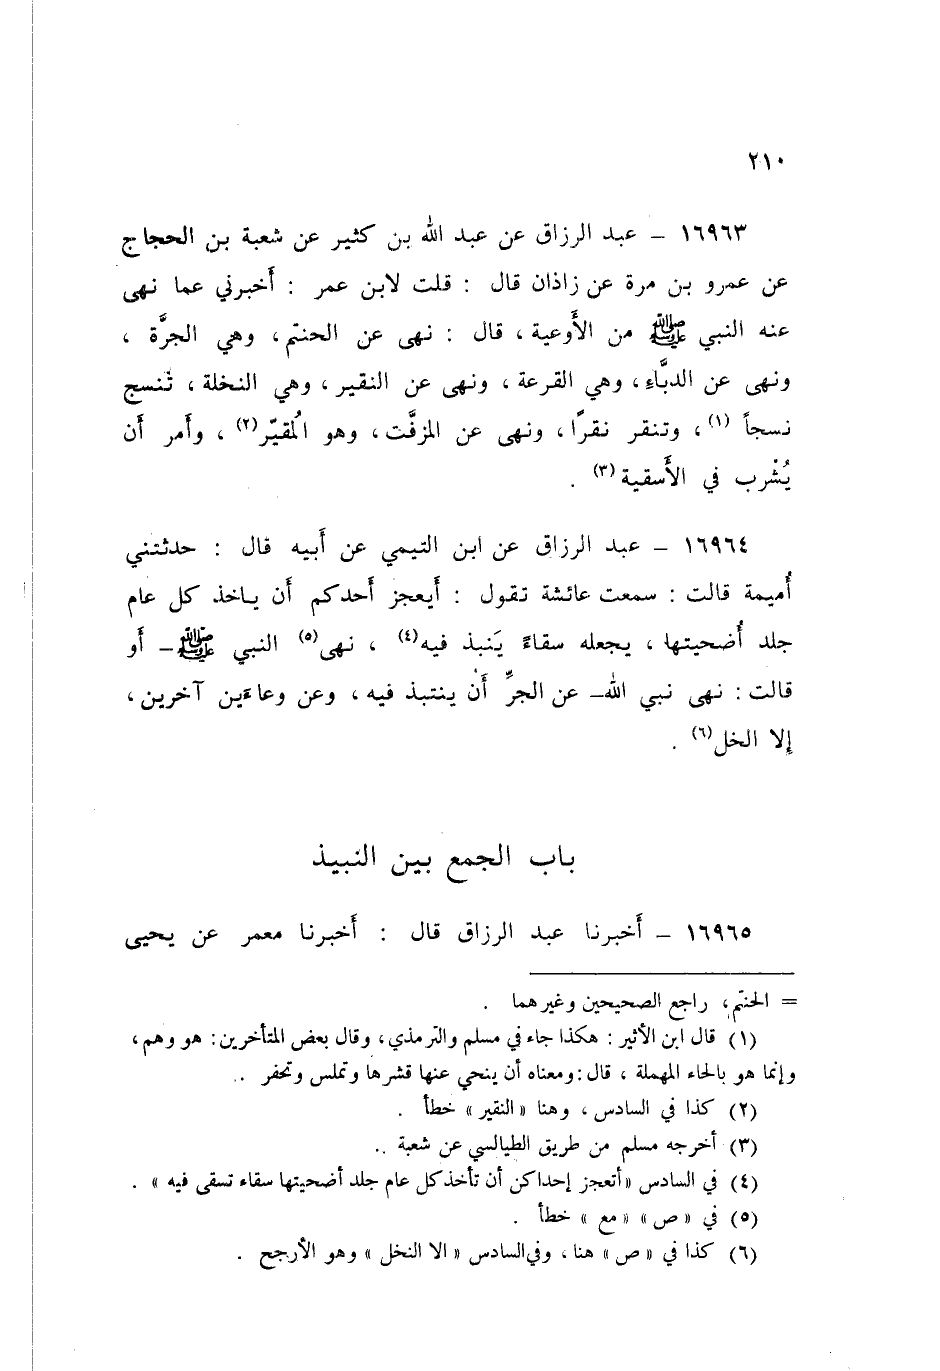 ٢١٠
١٦٩٦٣ – عبد الرزاق عن عبد الله بن كثير عن شعبة بن الحجاج
عن عمرو بن مرة عن زاذان قال : قلت لابن عمر : أَخبرني عما نهى
عنه النبي ﷺ من الأَوعية ، قال : نهى عن الحنتم ، وهي الجرَّة ،
ونهى عن الدبَّاءِ ، وهي القرعة ، ونهى عن النقير ، وهي النخلة ، تُنسج
نسجاً (١) ، وتنقر نقرًا ، ونهى عن المزفَّت ، وهو المُقيّر (٢) ، وأَمر أَن
يُشْرب في الأَسقية (٣) .
١٦٩٦٤ – عبد الرزاق عن ابن التيمي عن أَبيه قال : حدثتني
أُميمة قالت : سمعت عائشة تقول : أَيعجز أَحدكم أَن ياخذ كل عام
جلد أُضحيتها ، يجعله سقاءً يَنبذ فيه (٤) ، نهى (٥) النبي ﷺ – أَو
قالت : نهى نبي الله – عن الجرِّ أَنْ ينتبذ فيه ، وعن وعاءَين آخرين ،
إِلا الخل (٦) .
باب الجمع بين النبيذ
١٦٩٦٥ – أَخبرنا عبد الرزاق قال : أَخبرنا معمر عن يحيى
= الحنتم ، راجع الصحيحين وغيرهما .
(١) قال ابن الأثير : هكذا جاء في مسلم والترمذي ، وقال بعض المتأخرين : هو وهم ،
وإنما هو بالحاء المهملة ، قال : ومعناه أن ينحي عنها قشرها وتملس وتحفر ..
(٢) كذا في السادس ، وهنا « النقير » خطأ .
(٣) أخرجه مسلم من طريق الطيالسي عن شعبة ..
(٤) في السادس « أتعجز إحداكن أن تأخذ كل عام جلد أضحيتها سقاء تسقى فيه » .
(٥) في « ص » « مع » خطأ .
(٦) كذا في « ص » هنا ، وفي السادس « الا النخل » وهو الأرجح .